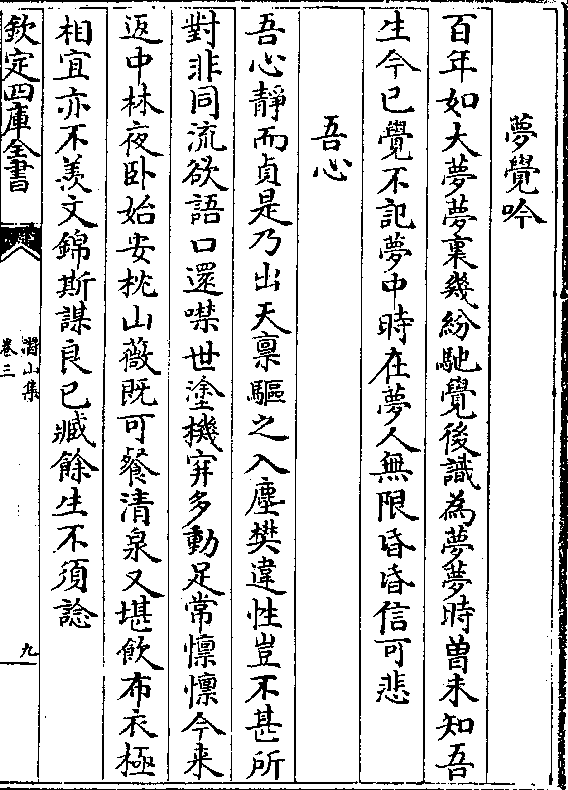 夢覺吟
百年如大夢夢裏幾紛馳覺後識為夢夢時曽未知吾
生今已覺不記夢中時在夢人無限昏昏信可悲
吾心
吾心靜而貞是乃出天稟驅之入塵樊違性豈不甚所
對非同流欲語口還噤世塗機穽多動足常懍懍今来
返中林夜卧始安枕山薇既可餐清泉又堪飲布衣極
相宜亦不羨文錦斯謀良已臧餘生不須諗
欽定四庫全書
濳山集
卷三
九